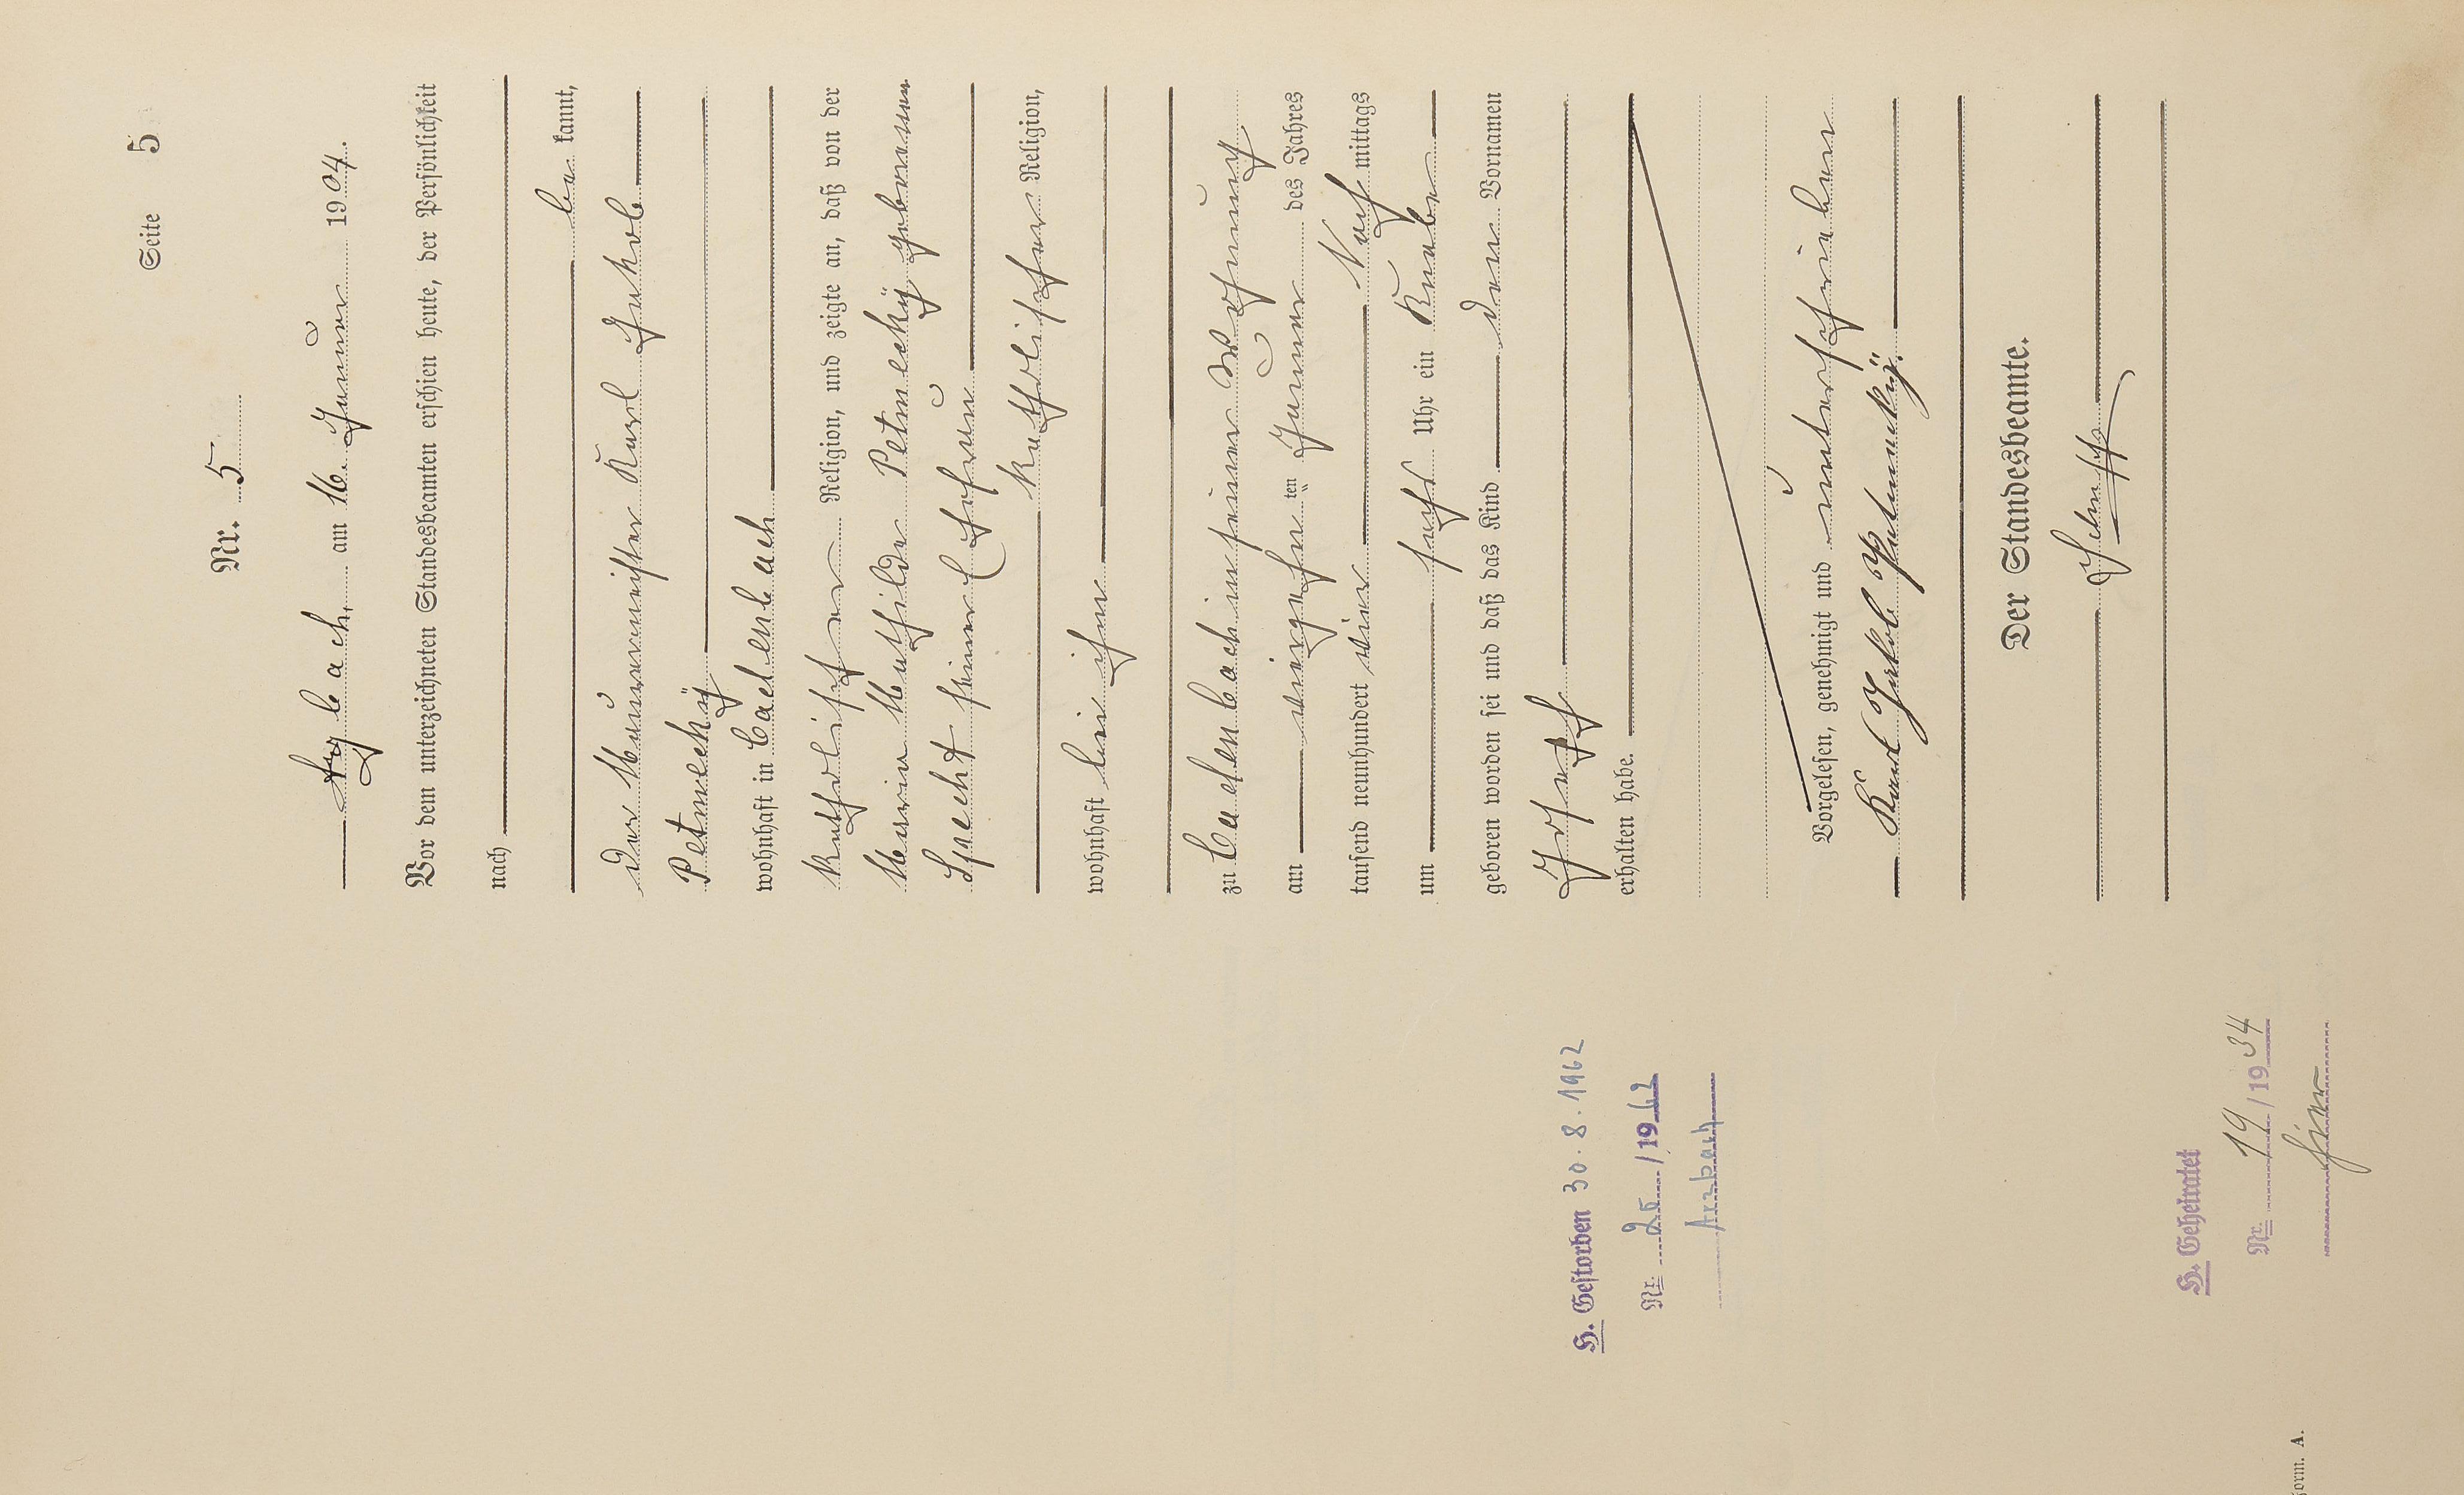 Seite 5
Nr. 5
Arzbach, am 16. Januar 1904.
Vor dem unterzeichneten Standesbeamten erschien heute, der Persönlichkeit
nach
be kannt,
der Maurermeister Karl Jakob
Petmeckÿ
wohnhaft in Cadenbach
katholischer Religion, und zeigte an, daß von der
Maria Mathilde Petmeckÿ geborenen
Specht seiner Ehefrau
katholischer Religion,
wohnhaft bei ihm
zu Cadenbach in seiner Wohnung
am vierzehn ten Januar des Jahres
tausend neunhundert vier Nach mittags
um sechs Uhr ein Knabe
geboren worden sei und daß das Kind den Vornamen
Joseph
erhalten habe.
Vorgelesen, genehmigt und unterschrieben
Karl Jakob Petmeckÿ.
Der Standesbeamte.
H. Gestorben 30.8.1962
Nr. 25 /1962
Arzbach
H. Geheiratet
Nr. 19 /1934
hier
Form. A.